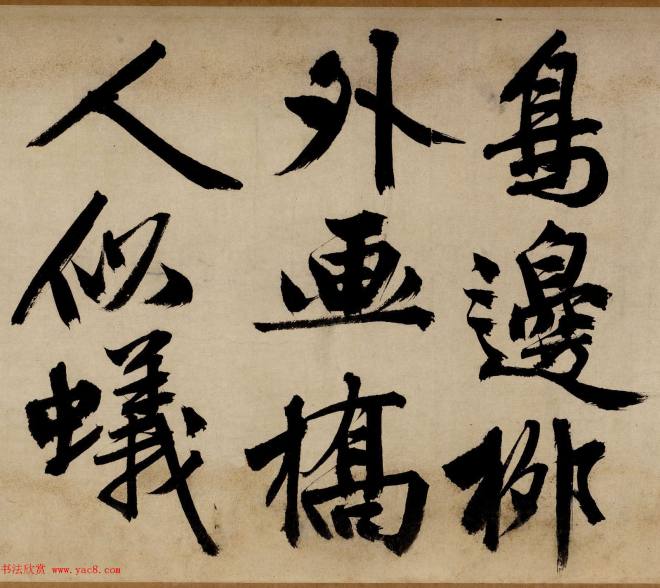 鳥邊柳
外畫橋
人似蟻
书法欣赏 www.yac8.com